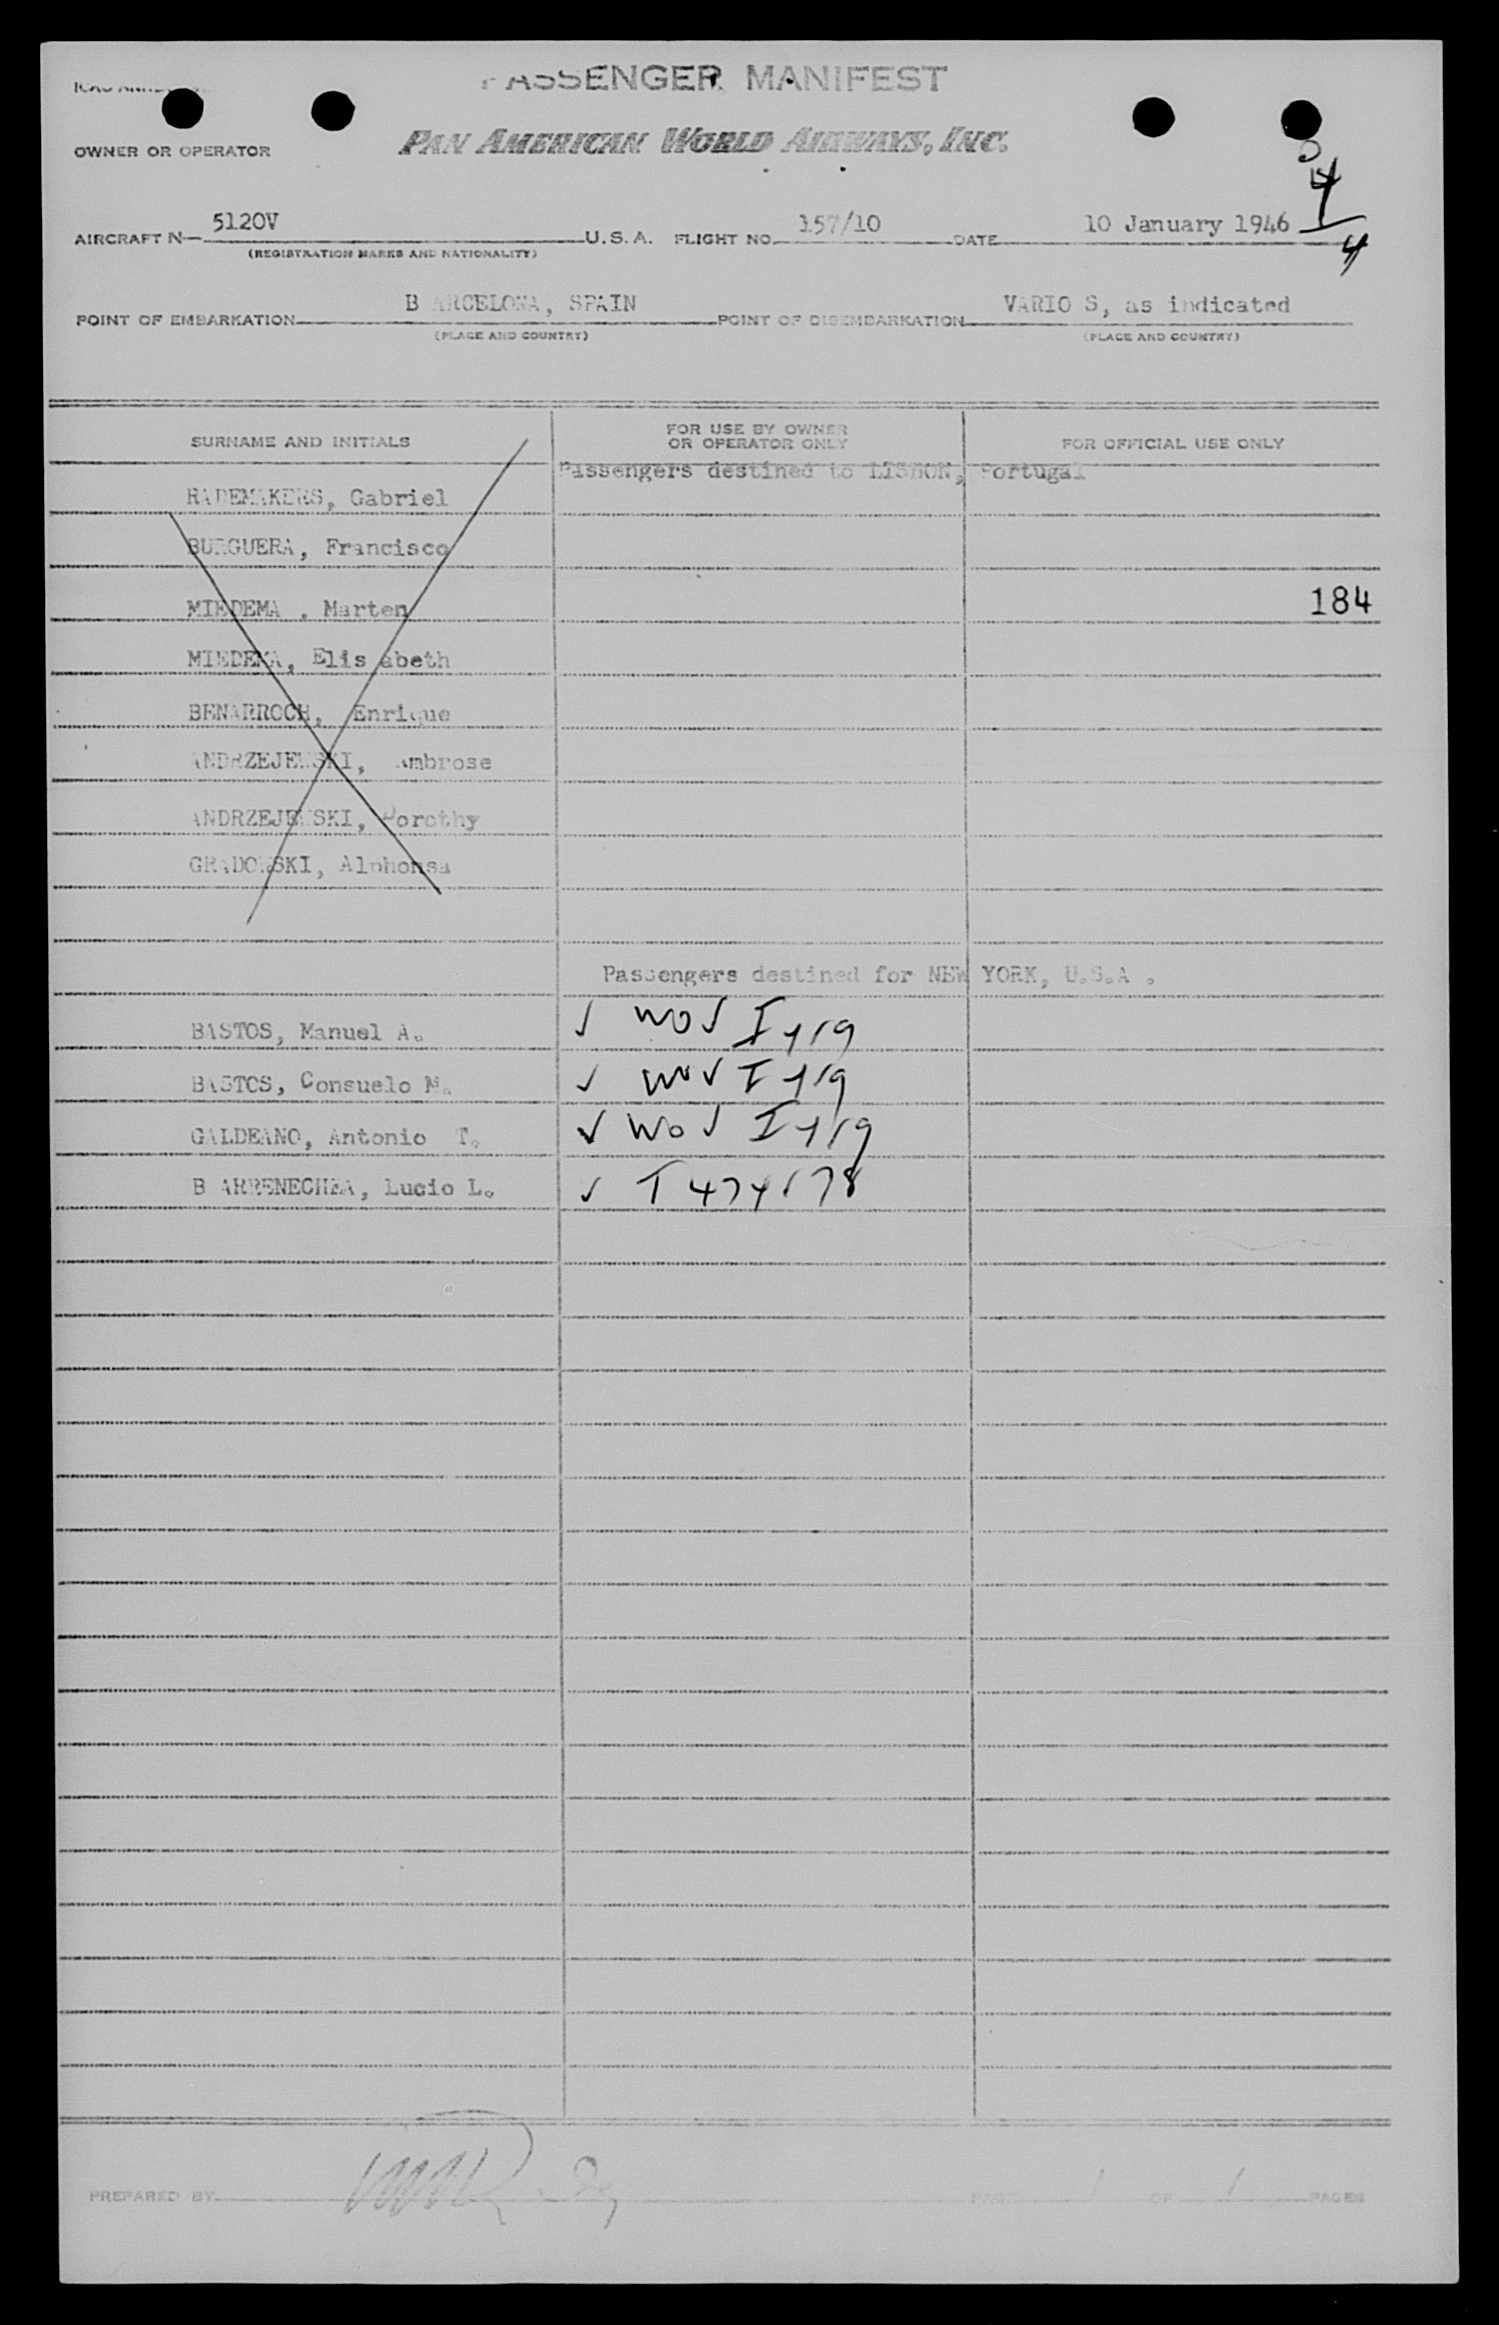 PASSENGER MANIFEST
OWNER OR OPERATOR
PAN AMERICAN WORLD AIRWAYS, INC.
4
4
AIRCRAFT N— 5120V U.S.A. FLIGHT NO. 157/10 DATE 10 January 1946
(REGISTRATION MARKS AND NATIONALITY)
POINT OF EMBARKATION B ARCELONA, SPAIN POINT OF DISEMBARKATION VARIO S, as indicated
(PLACE AND COUNTRY) (PLACE AND COUNTRY)
SURNAME AND INITIALS FOR USE BY OWNER OR OPERATOR ONLY FOR OFFICIAL USE ONLY
Passengers destined to LISBON, Portugal
RADEMAKERS, Gabriel
BURGUERA, Francisco
MIEDEMA , Marten 184
MIEDEMA, Elis abeth
BENARROCH, Enrique
ANDRZEJEWSKI, Ambrose
ANDRZEJEWSKI, Dorothy
GRADOWSKI, Alphonsa
Passengers destined for NEW YORK, U.S.A .
BASTOS, Manuel A. √ WO √ I 419
BASTOS, Consuelo M. √ WO √ I 419
GALDEANO, Antonio T. √ WO √ I 419
B ARRENECHEA, Lucio L. √ T 474178
PREPARED BY PAGE 1 OF 1 PAGES